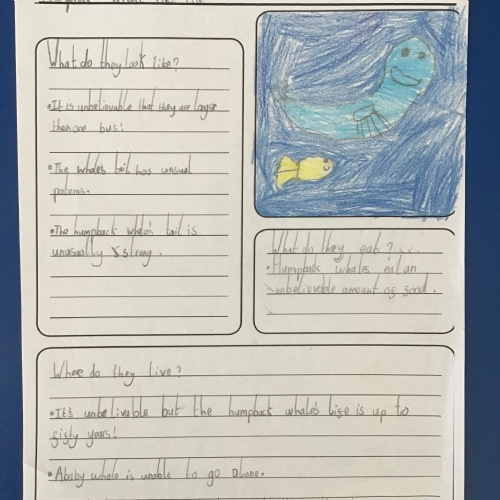 What do they look like?
•It is unbelievable that they are longer
than one bus!
•The whale's tail has unusual
paterns.
•The humpback whale's tail is
unusually strong.
What do they eat?...
•Humpback whales eat an
unbelievable amount of
Where do they live?
•It's unbelivable but the humpback whale's life is up to
sixty years!
•A baby whale is unable to go alone.